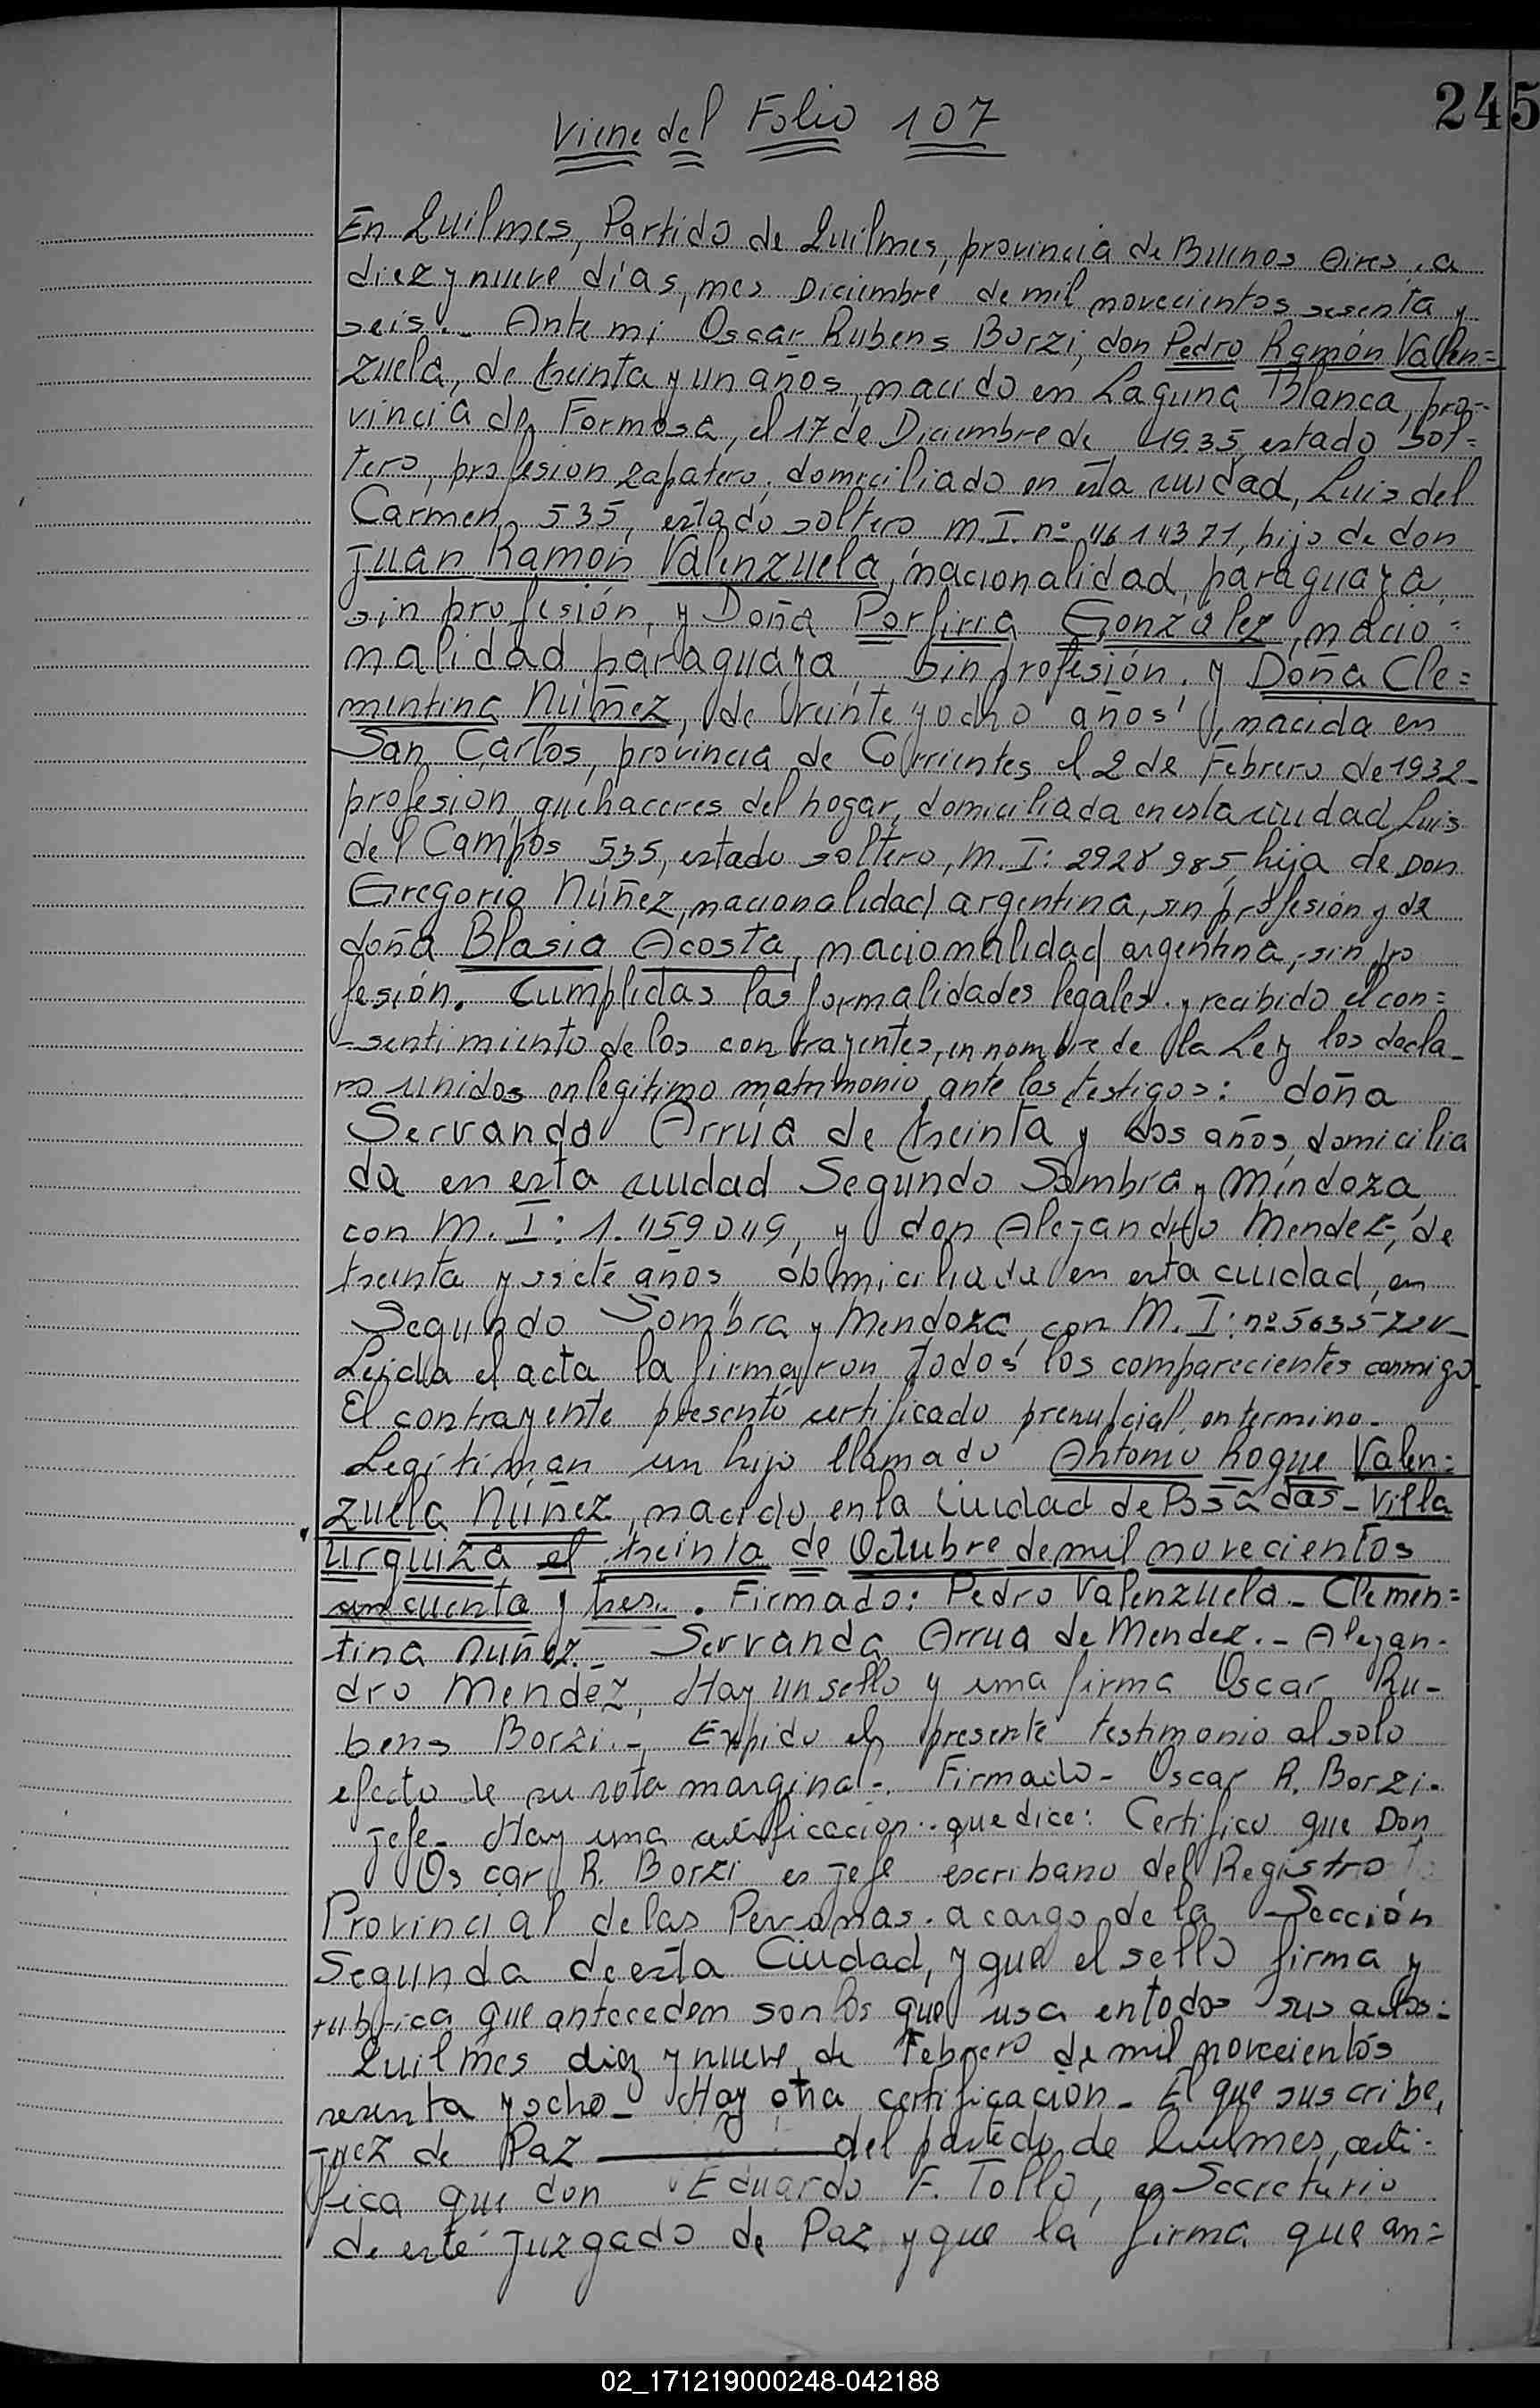 245
Viene del Folio 107
En Quilmes, Partido de Quilmes, provincia de Buenos Aires, a
diez y nueve días, mes Diciembre de mil novecientos sesenta y
seis.- Ante mi Oscar Rubens Borzi, don Pedro Ramón Valen=
zuela, de treinta y un años, nacido en Laguna Blanca, pro-
vincia de Formosa, el 17 de Diciembre de 1935, estado sol=
tero, profesion zapatero, domiciliado en esta ciudad, Luis del
Carmen 535, estado soltero, M.I. nº 4614371, hijo de don
Juan Ramón Valenzuela, nacionalidad, paraguaya,
sin profesión, y Doña Porfiria González, nacio=
nalidad paraguaya, sin profesión. y Doña Cle=
mentina Núñez, de veinte y ocho años, nacida en
San Carlos, provincia de Corrientes el 2 de Febrero de 1932-
profesion quehaceres del hogar, domiciliada en esta ciudad Luis
del Campos 535, estado soltero, M. I: 2928985, hija de Don
Gregorio Núñez, nacionalidad argentina, sin profesión y de
doña Blasia Acosta, nacionalidad argentina, sin pro
fesión. Cumplidas las formalidades legales. y recibido el con=
-sentimiento de los contrayentes, en nombre de la Ley los decla-
ro unidos en legitimo matrimonio, ante los testigos: doña
Servanda Arrúa de treinta y dos años, domicilia
da en esta ciudad Segundo Sombra y Mendoza,
con M. I: 1.459049, y don Alejandro Mendez, de
treinta y siete años, domiciliada en esta ciudad, en
Segundo Sombra y Mendoza, con M. I: nº
Leida el acta la firmaron todos los comparecientes conmigo.
El contrayente presentó certificado prenupcial, en termino.
Legitiman un hijo llamado Antonio Roque Valen=
zuela Núñez, nacido en la ciudad de Posadas - Villa
Urquiza el treinta de Octubre de mil novecientos
cincuenta y tres.. Firmado: Pedro Valenzuela - Clemen=
tina Nuñez.- Servanda Arrua de Mendez.- Alejan-
dro Mendez, Hay un sello y una firma Oscar Ru-
bens Borzi.- Expido el presente testimonio al solo
efecto de su nota marginal-. Firmado - Oscar R. Borzi.
jefe- Hay una certificacion.. que dice: Certifico que Don
Oscar R. Borzi es jefe escribano del Registro
Provincial de las Personas. a cargo de la Sección
Segunda de esta Ciudad, y que el sello firma y
rubrica que anteceden son los que usa en todos sus actos:
Quilmes diez y nueve de Febrero de mil novecientos
sesenta y ocho- Hay otra certificación - El que suscribe,
juez de Paz del partido de Quilmes, certi-
fica que don Eduardo F. Tollo, es Secretario
de este juzgado de Paz y que la firma que an=
02_171219000248-042188